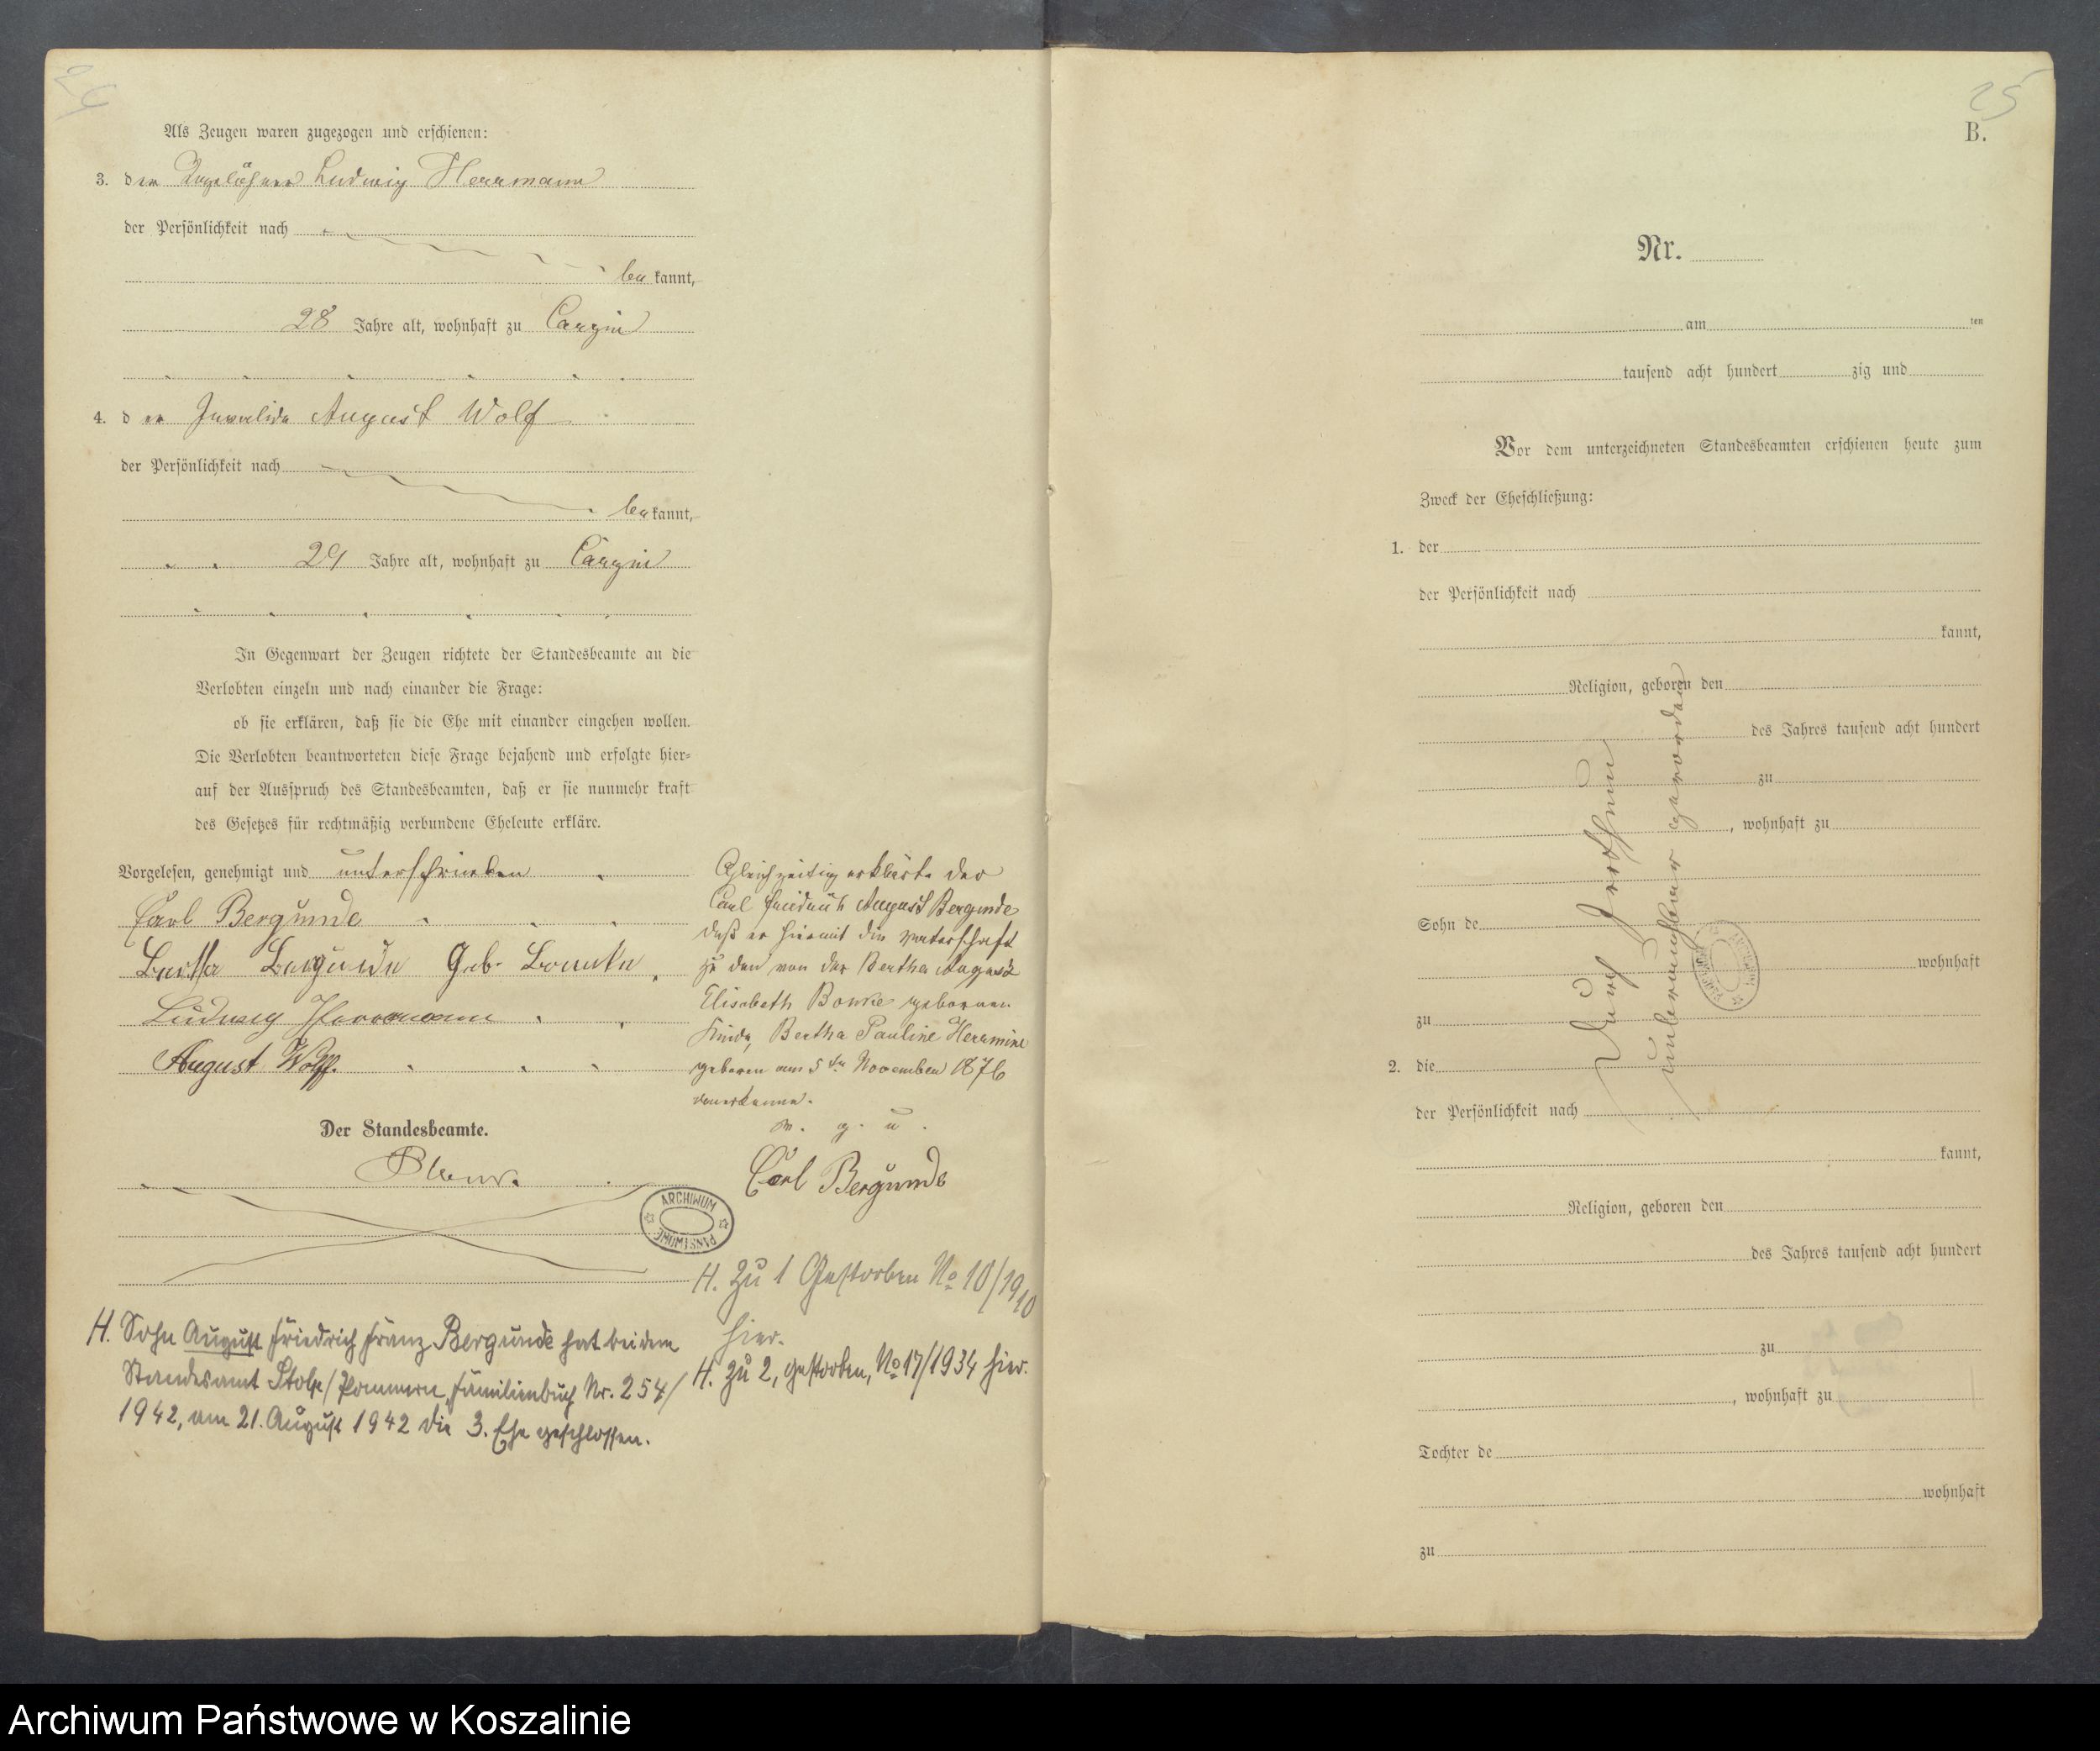 24
Als Zeugen waren zugezogen und erschienen:
3. der Tagelöhner Ludwig Herrmann
der Persönlichkeit nach
be kannt,
28 Jahre alt, wohnhaft zu Cargin
4. d er Invalide August Wolf
der Persönlichkeit nach
be kannt,
29 Jahre alt, wohnhaft zu Cargin
In Gegenwart der Zeugen richtete der Standesbeamte an die
Verlobten einzeln und nach einander die Frage:
ob sie erklären, daß sie die Ehe mit einander eingehen wollen.
Die Verlobten beantworteten diese Frage bejahend und erfolgte hier-
auf der Ausspruch des Standesbeamten, daß er sie nunmehr kraft
des Gesetzes für rechtmäßig verbundene Eheleute erkläre.
Vorgelesen, genehmigt und unterschrieben
Carl Bergunde
Bertha Bergunde Geb. Bonke
Ludwig Herrmann
August Wolff.
Der Standesbeamte.
ARCHIWUM PAŃSTWOWE
H. Sohn August Friedrich Franz Bergunde hat bei dem
Standesamt Stolp/Pommern, Familienbuch Nr. 254/
1942, am 21. August 1942 die 3. Ehe geschlossen.
Gleichzeitig erklärte der
Carl Friedrich August Bergunde
daß er hiermit die Vaterschaft
zu dem von der Bertha August
Elisabeth Bonke geborenen
Kinde, Bertha Pauline Herrmine
geboren am 5ten November 1876
anerkenne.
v. g. u.
Carl Bergunde
H. Zu 1 Gestorben No 10/1910
hier.
H. Zu 2, gestorben, No 17/1934 hier.
25
B.
Nr.
am ten
tausend acht hundert zig und
Vor dem unterzeichneten Standesbeamten erschienen heute zum
Zweck der Eheschließung:
1. der
der Persönlichkeit nach
kannt,
Religion, geboren den
des Jahres tausend acht hundert
zu
, wohnhaft zu
Sohn de
wohnhaft
zu
2. die
der Persönlichkeit nach
kannt,
Religion, geboren den
des Jahres tausend acht hundert
zu
, wohnhaft zu
Tochter de
wohnhaft
zu
Durch
unbrauchbar geworden
Archiwum Państwowe w Koszalinie